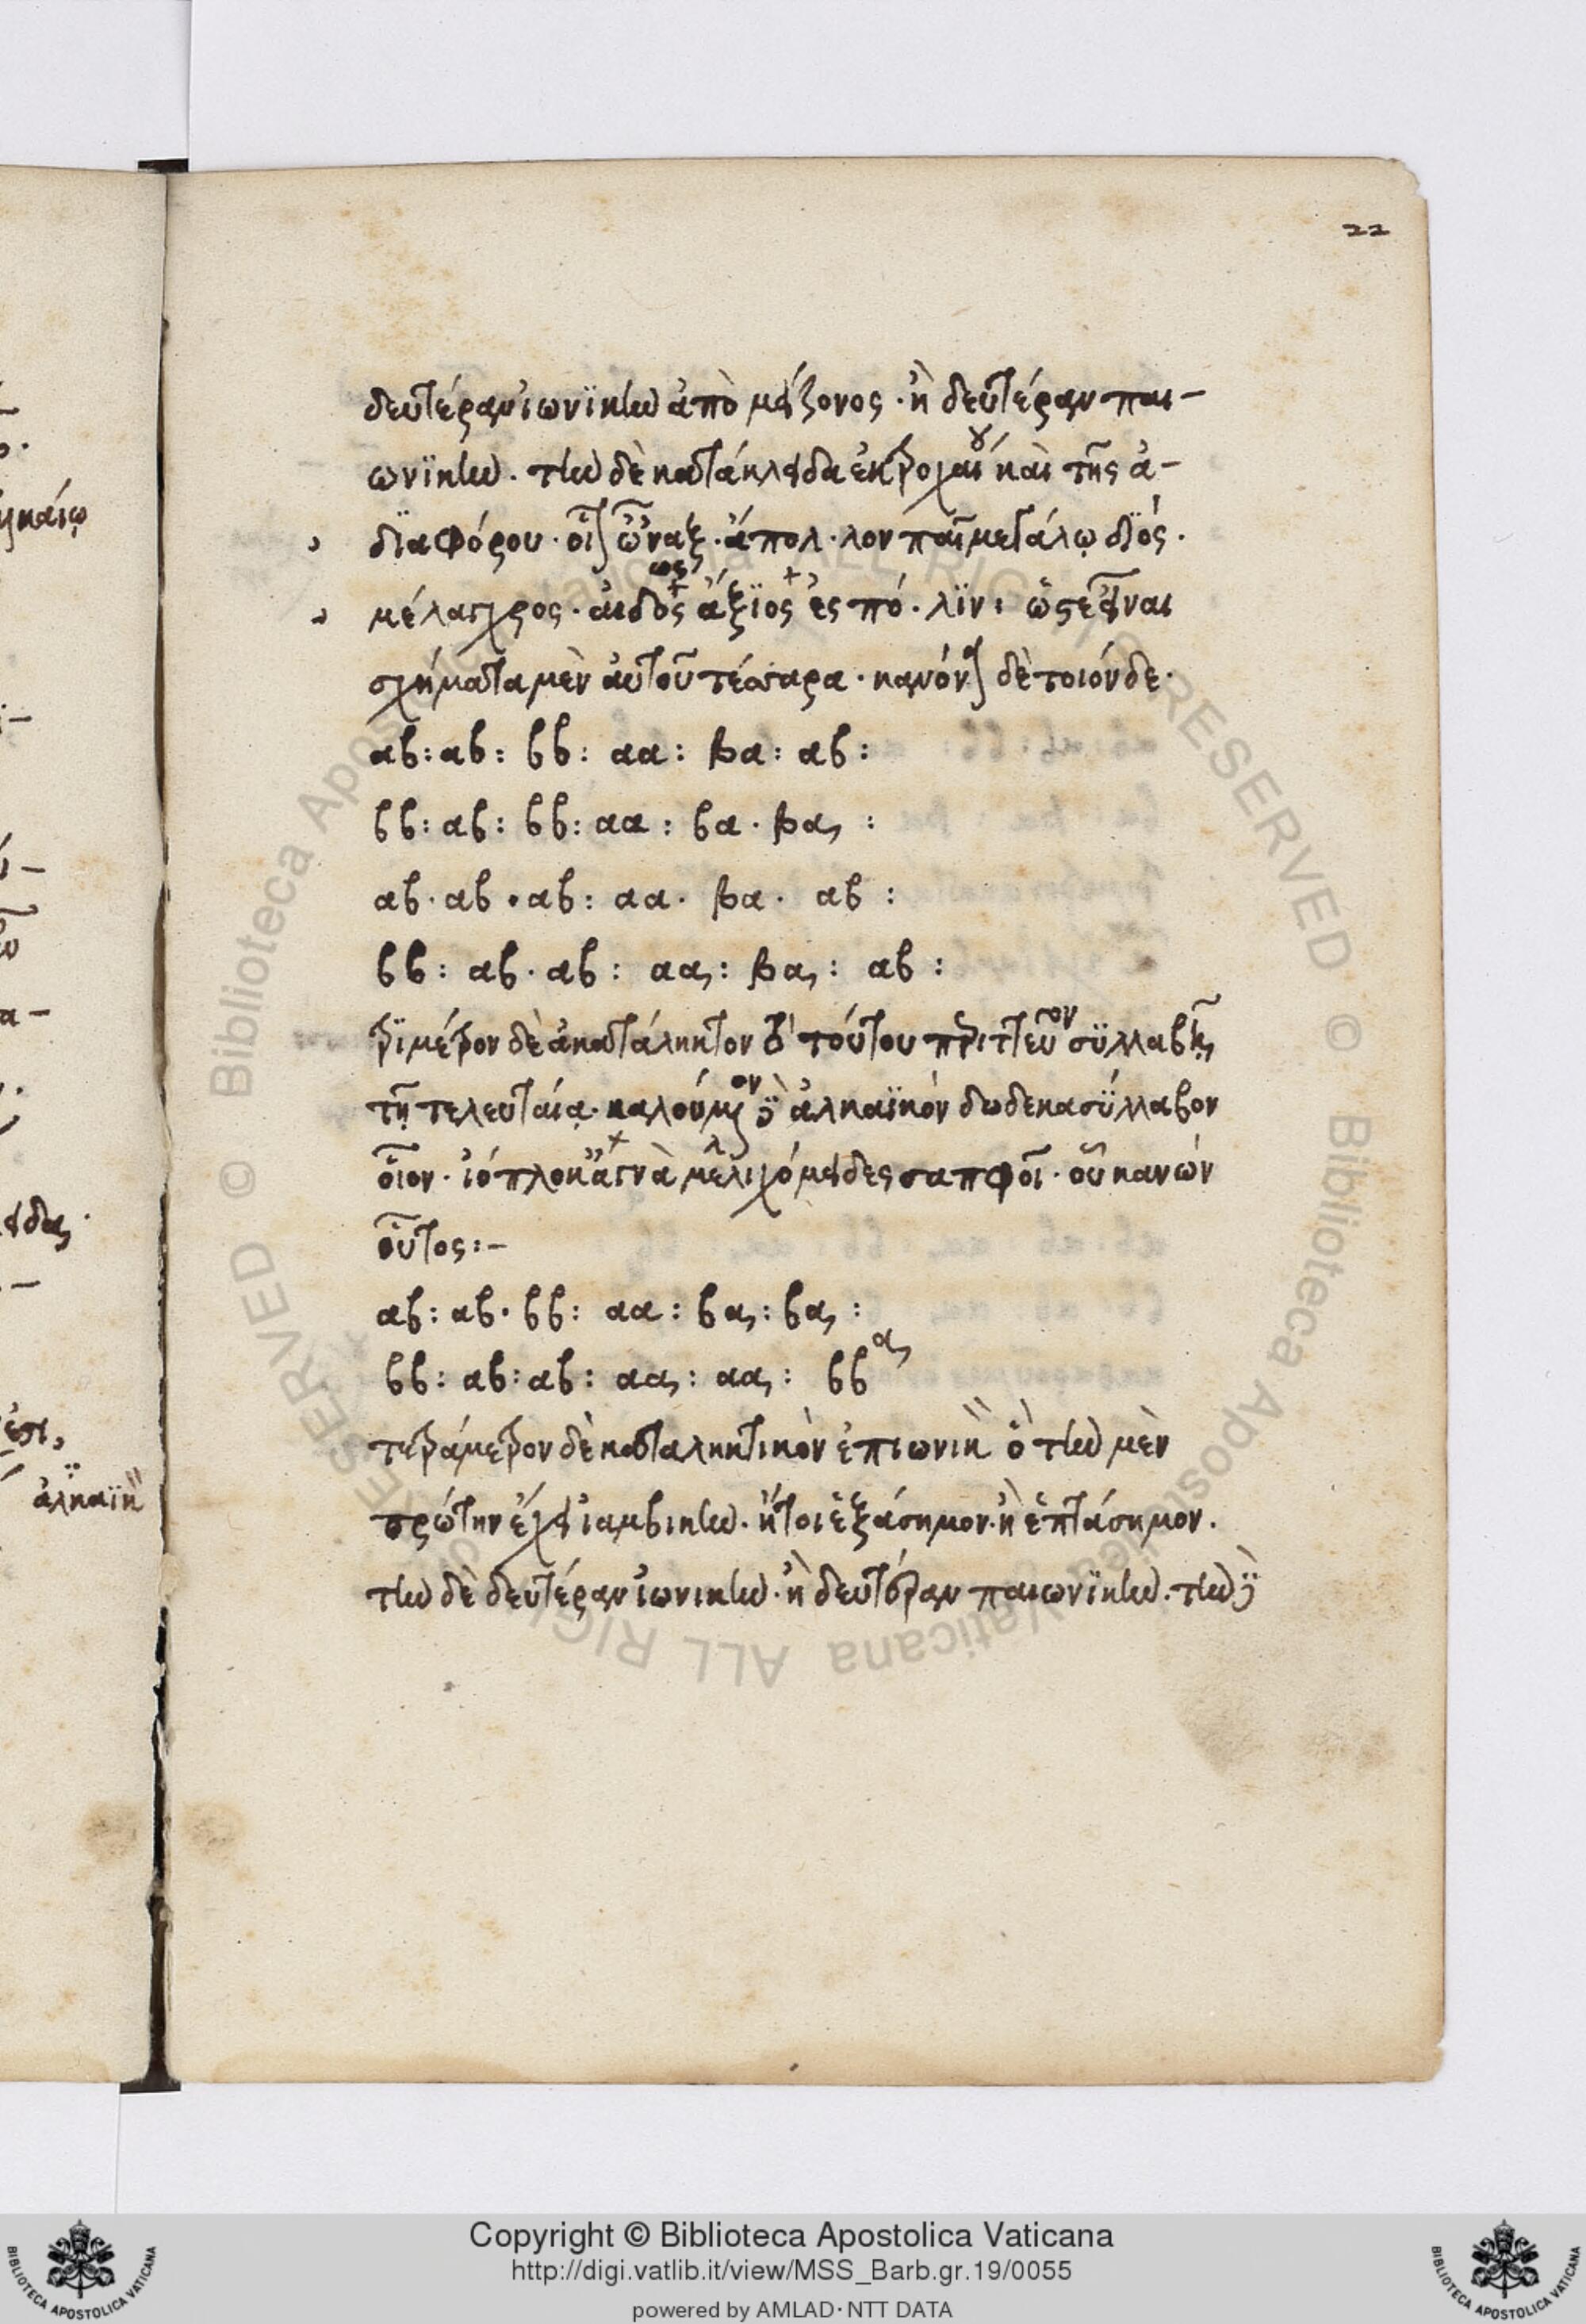 22
δευτέραν ἰωνϊκὴν ἀπὸ μείζονος · ἢ δευτέραν παι-
ωνϊκὴν. τὴν δὲ κατάκλειδα ἐκ τροχαίου καὶ τῆς ἀ-
δϊαφόρου · οἷον ὦναξ · ἄπολ · λον παῖ μεγάλῳ διός ·
μέλαγχρος · αἰδος ως ἄξϊος ἐς πό · λϊν : ὥστε εἶναι
σχήματα μὲν αὐτοῦ τέσσαρα · κανόνα δὲ τοιόνδε ·
αβ : αβ : ββ : αα : βα : αβ :
ββ : αβ : ββ : αα : βα · βα :
αβ · αβ · αβ : αα · βα · αβ :
ββ : αβ · αβ : αα : βα : αβ :
τρϊμέτρον δὲ ἀκατάληκτον τούτου περιττεῦον σϋλλαβῇ
τῇ τελευταίᾳ · καλούμενον ἀλκαϊκὸν δωδεκασΰλλαβον
οἷον · ἰόπλοκ ἄγνὰ μελλιχόμειδες σαπφοῖ · οὗ κανὼν
οὗτος :-
αβ : αβ · ββ : αα : βα : βα :
ββ : αβ : αβ : αα : αα : ββ α
τετράμετρον δὲ καταληκτικὸν ἐπιωνικ ὃ τὴν μὲν
πρώτην ἔχει ἰαμβικὴν · ἤτοι ἑξάσημον · ἢ ἑπτάσημον .
τὴν δὲ δευτέραν ἰωνικὴν · ἢ δευτέραν παιωνϊκὴν . τὴν
Copyright © Biblioteca Apostolica Vaticana
http://digi.vatlib.it/view/MSS_Barb.gr.19/0055
powered by AMLAD · NTT DATA